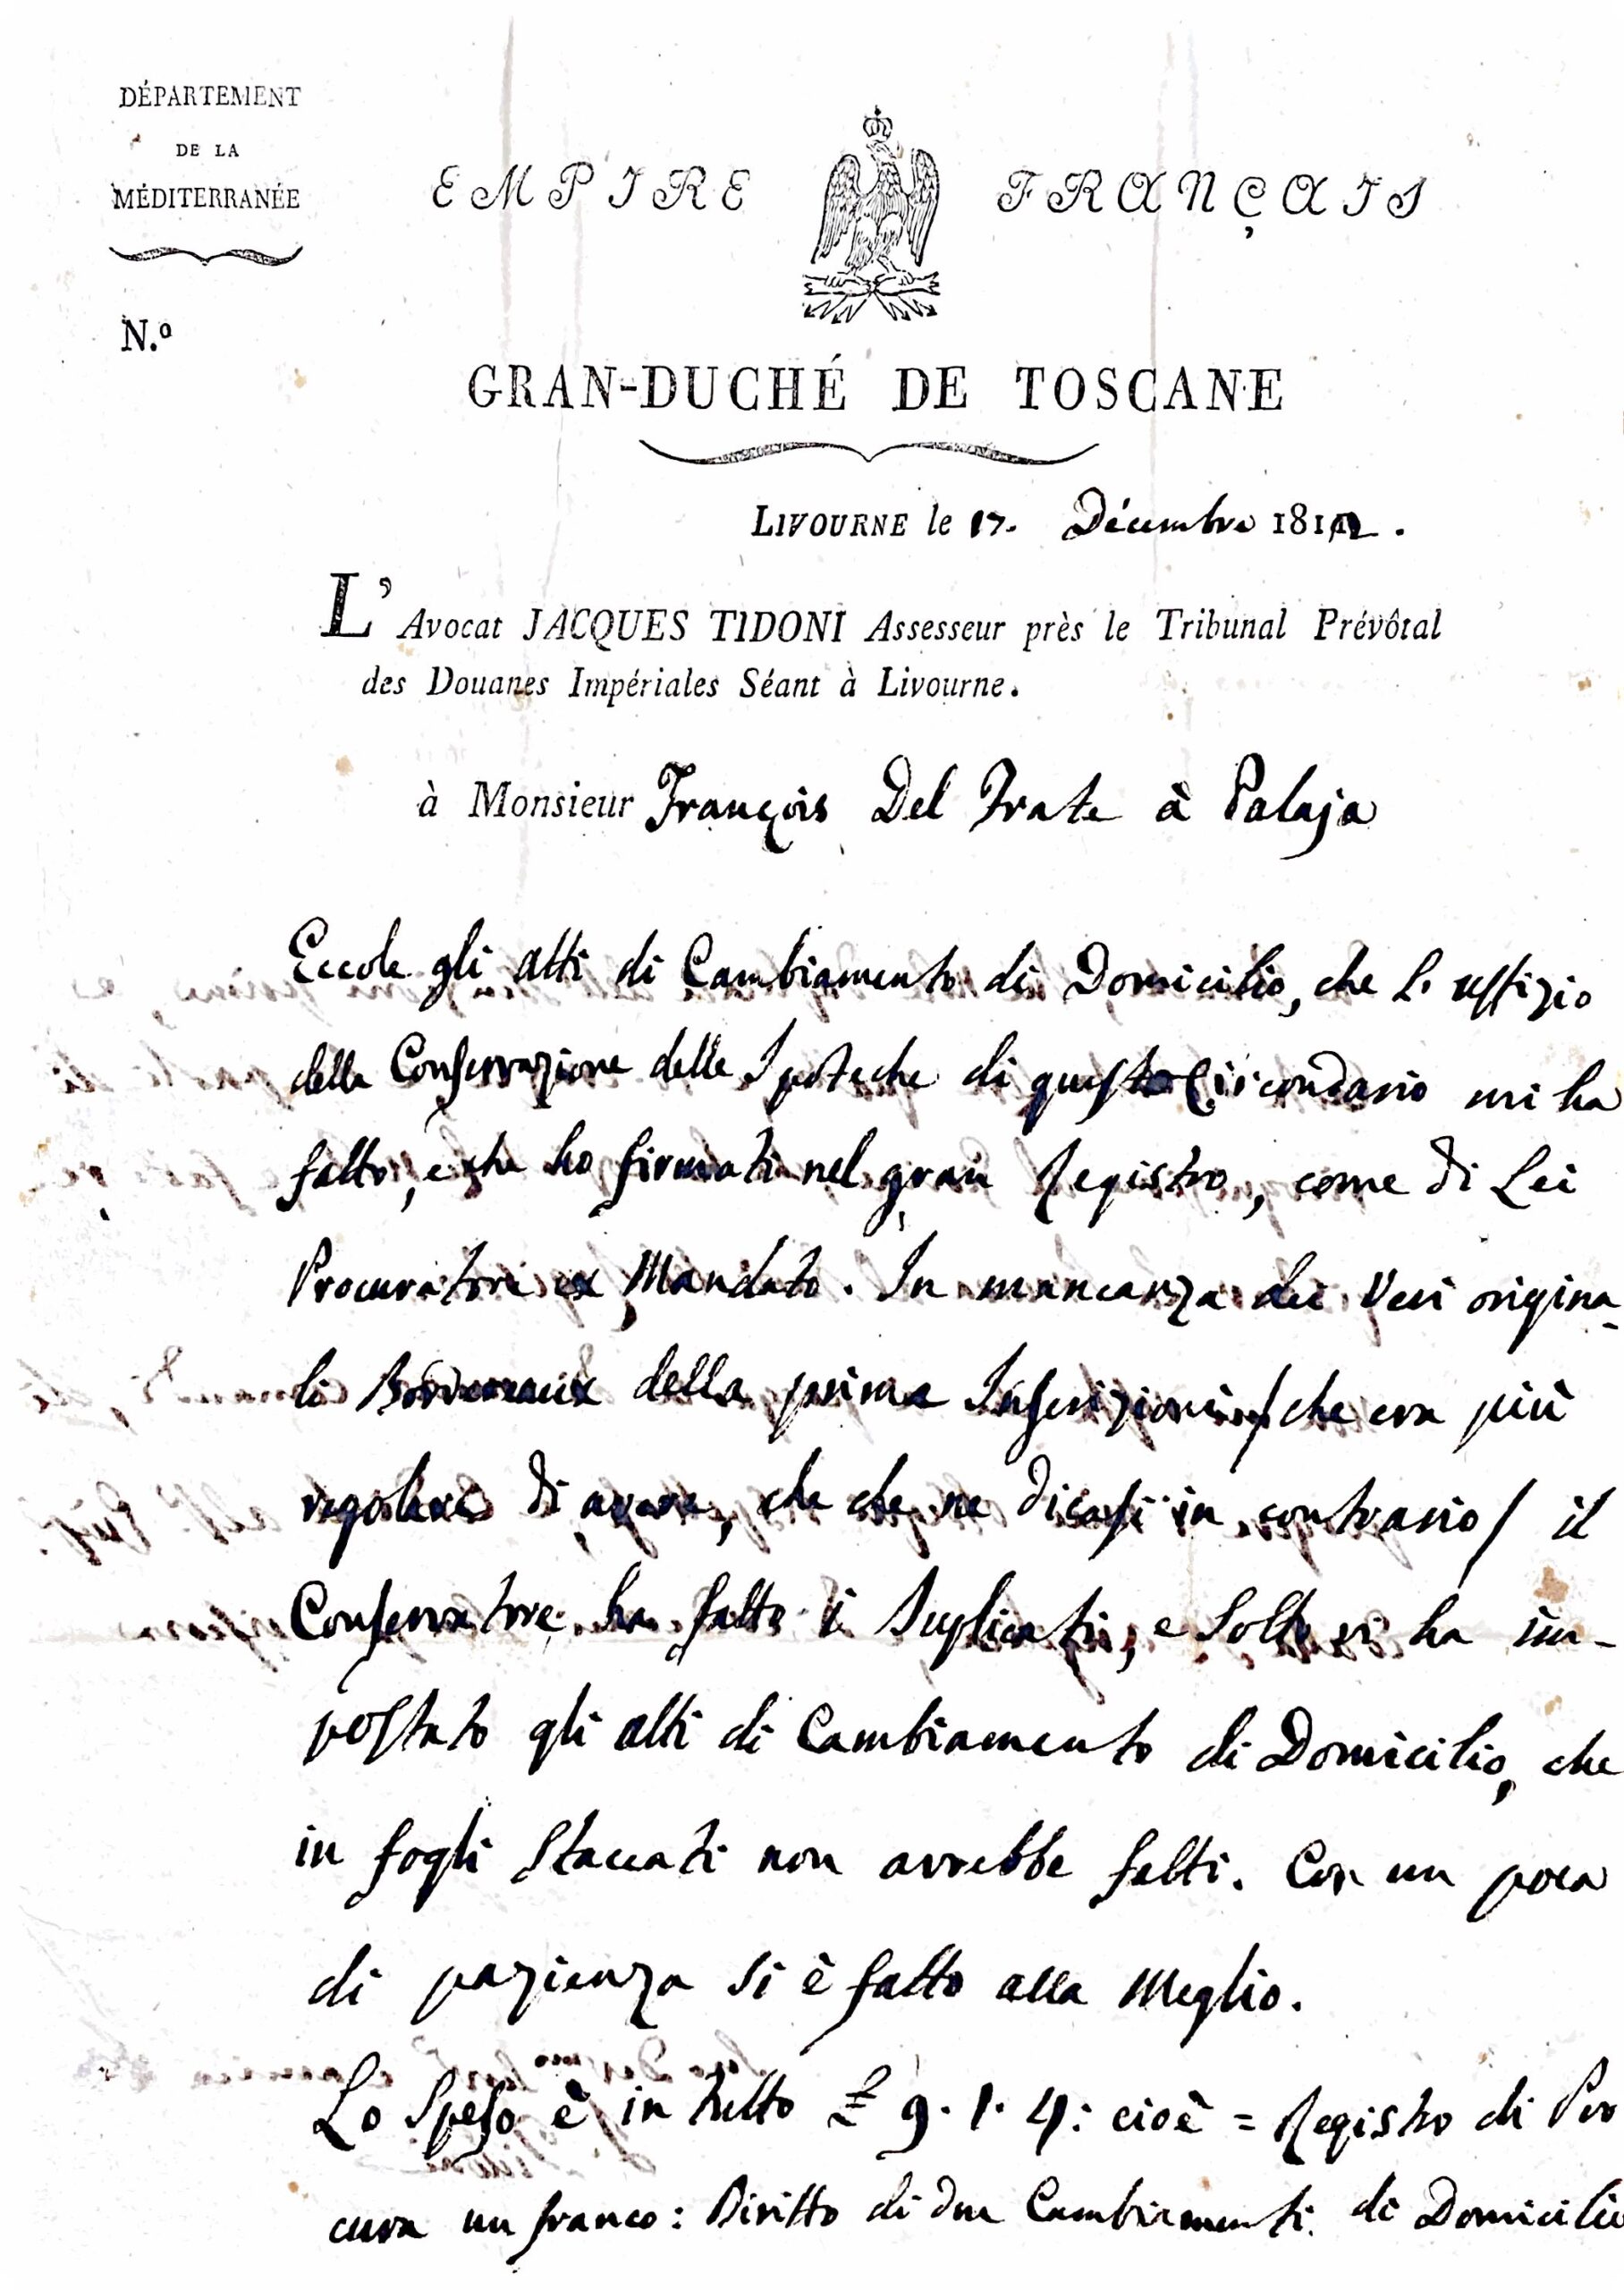 DÉPARTEMENT
DE LA
MÉDITERRANÉE
N.º
EMPIRE FRANÇAIS
GRAN-DUCHÉ DE TOSCANE
LIVOURNE le 17. Décembre 1812.
L' Avocat JACQUES TIDONI Assesseur près le Tribunal Prévôtal
des Douanes Impériales Séant à Livourne.
à Monsieur François Del Frate à Palaja
Eccole gli atti di Cambiamento di Domicilio, che l'uffizio
della Conservazione delle Ipoteche di questo Circondario mi ha
fatto, e che ho firmati nel gran Registro, come di Lei
Procuratore ex Mandato. In mancanza dei Veri origina-
li Borderaux della prima Inscrizione / che era più
regolare di avere, che che ne dicasi in contrario / il
Conservatore ha fatto i Duplicati, e Sotto vi ha im-
postato gli atti di Cambiamento di Domicilio, che
in fogli Staccati non avrebbe fatti. Con un poca
di pazienza si è fatto alla Meglio.
Lo Speso è in tutto £ 9. 1. 4: cioè = Registro di Pro
cura un franco: Diritto di due Cambiamenti di Domicilio